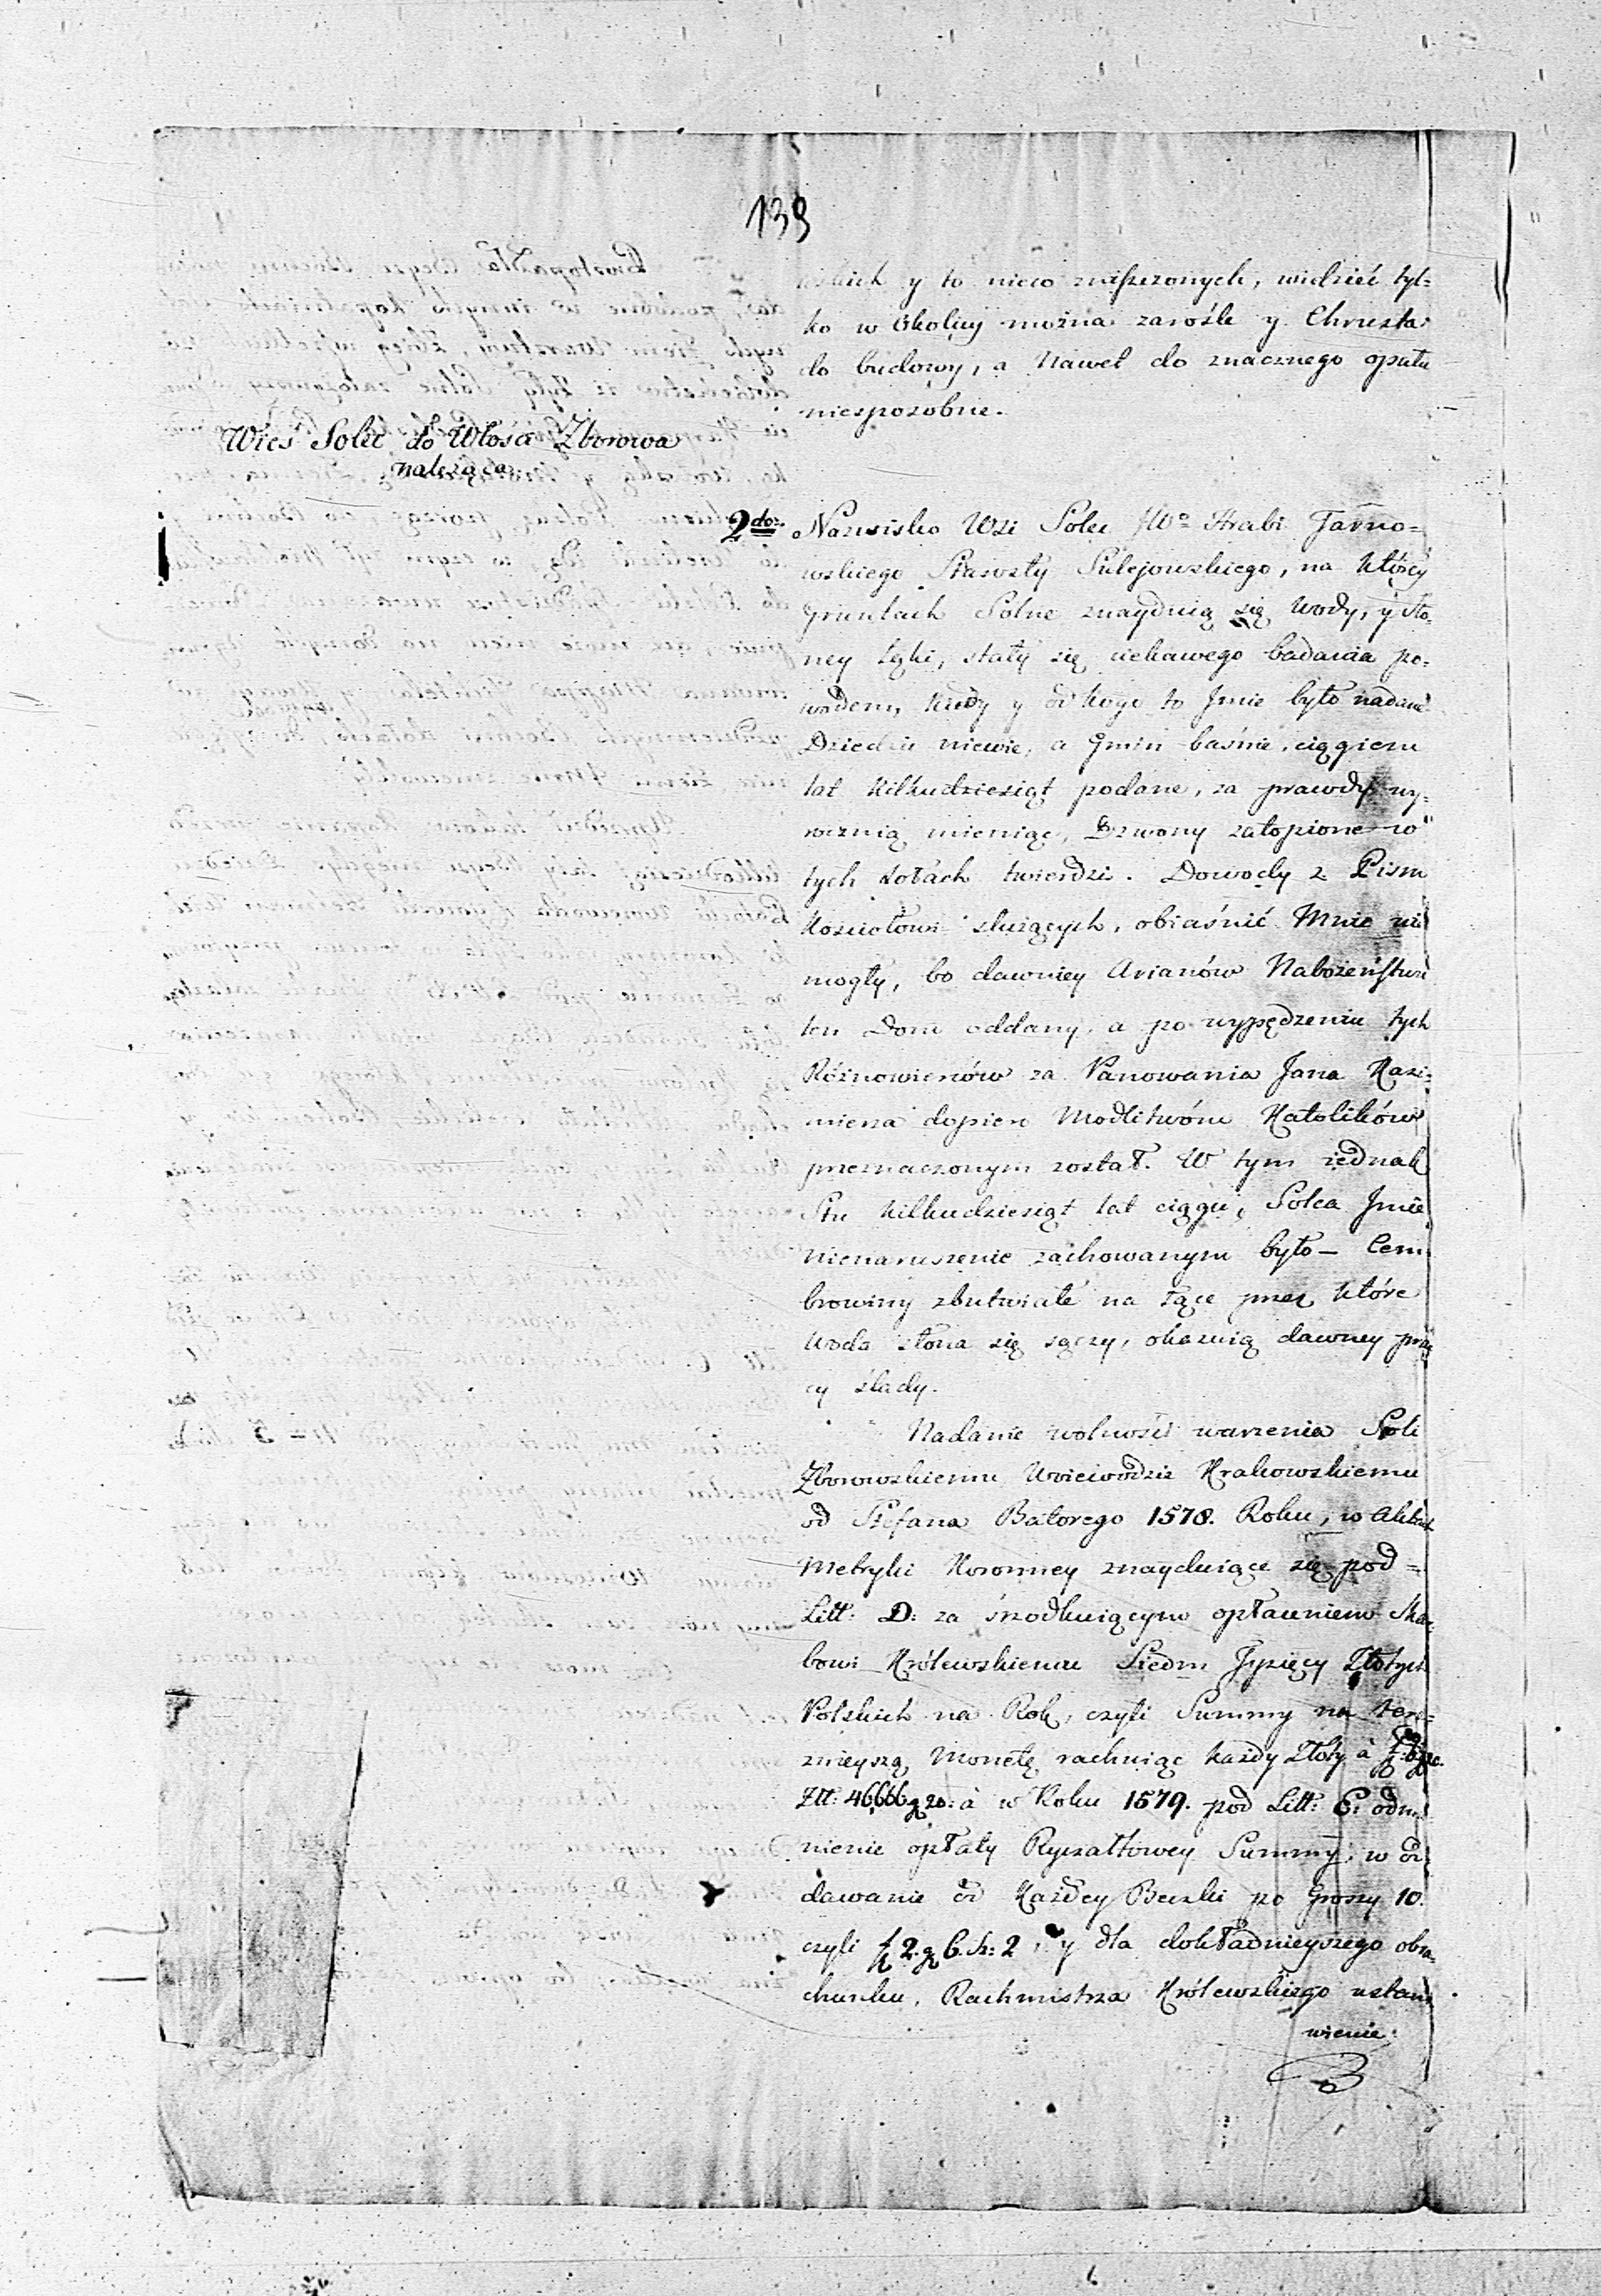 139
y to nieco zniszczonych, widzieć tyl=
ko w Okolicy można zarośle y Chrusta
do budowy, a Nawet do znacznego opału
niesposobne.
Wieś Solec do Włości Zborowa
należąca
2do. Nazwisko Wsi Solec JWo Hrabi Tarno=
wskiego Starosty Sulejowskiego, na którey
gruntach Solne znayduią się Wody, y Sło=
ney Łąki, stały się ciekawego badania po=
wodem, kiedy y od kogo to Jmie było nadane
Dziedzic niewie, a Gmin baśnie, ciągiem
lat kilkudziesiąt podane, za prawdy wy=
wieźnią mieniąc, Dzwony zatopione w
tych dołach twierdzi. Dowody z Pism
Kościołowi służących, obiaśnić Mnie nie
mogły, bo dawniey Arianów Nabożeństwu
ten Dom oddany, a po wypędzeniu tych
Różnowierców za Panowania Jana Kazi=
mierza dopiero Modlitwóm Katolików
przeznaczonym został. W tym iednak
Stu kilkudziesiąt lat ciągu, Solca Jmie
Nienaruszenie zachowanym było — Cem
browiny zbutwiałe na Łące przez które
Woda słona się sączy, okazuią dawney pra
cy ślady.
Nadanie wolności warzenia Soli
Zborowskiemu Woiewodzie Krakowskiemu
od Stefana Batorego 1578. Roku, w Aktach
Metryki Koronney znayduiące się pod=
Litt: D: za środkuiącym opłaceniem Ska=
bowi Królewskiemu Siedm Tysięcy Złotych
Polskich na Rok, czyli Summy na ter=
znieyszą Monetę rachuiąc każdy Złoty à
Złł: 46666 g 20: à w Roku 1579. pod Litt: E: odm
nienie opłaty Ryczałtowey Summy, w od
dawanie od Każdey Beczki po Groszy 10.
czyli f 2. g 6. s: 2, y dla dokładnieyszego obra=
chunku, Rachmistrza Królewskiego ustano
wienie.